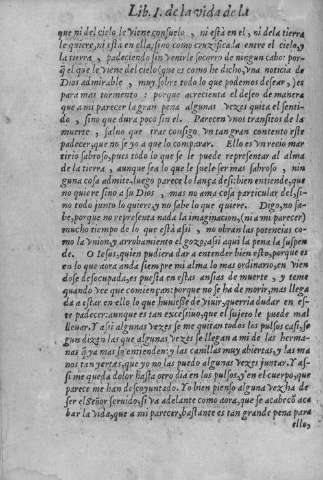 Lib. I. de la vida de la
que ni del cielo le viene consuelo, ni està en el, ni de la tierra
le quiere, ni està en ella, sino como crucificada entre el cielo, y
la tierra, padeciendo sin venirle socorro de ningun cabo: por
q̃ el que le viene del cielo (que es como he dicho, vna noticia de
Dios admirable, muy sobre todo lo que podemos desear,) es
para mas tormento: porque acrecienta el deseo de manera
que a mi parecer la gran pena algunas vezes quita el senti-
do, sino que dura poco sin el. Parecen vnos transitos de la
muerte, saluo que trae consigo vn tan gran contento este
padecer, que no se yo a que lo comparar. Ello es vn recio mar
tirio sabroso, pues todo lo que se le puede representar al alma
de la tierra, aunque sea lo que le suele ser mas sabroso, nin
guna cosa admite, luego parece lo lança de si: bien entiende, que
no quiere sino a su Dios, mas no ama cosa particular del, si-
no todo junto lo quiere, y no sabe lo que quiere. Digo, no sa-
be, porque no representa nada la imaginacion, (ni a mi parecer)
mucho tiempo de lo que està assi, no obran las potencias co-
mo la vnion, y arrobamiento el gozo, assi aqui la pena la suspen
de. O Iesus, quien pudiera dar a entender bien esto, porque es
en lo que aora anda siempre mi alma lo mas ordinario, en vien
dose desocupada, es puesta en estas ansias de muerte, y teme
quando vee que comiençan: porque no se ha de morir, mas llega
da a estar en ello lo que huuiesse de viuir, querria durar en es-
te padecer: aunque es tan excessiuo, que el sujeto le puede mal
lleuar. Y assi algunas vezes se me quitan todos los pulsos casi, se
gun dizen las que algunas vezes se llegan a mi de las herma-
nas q̃ ya mas lo entienden: y las canillas muy abiertas, y las ma
nos tan yertas, que yo no las puedo algunas vezes juntar. Y as-
si me queda dolor hasta otro dia en los pulsos, y en el cuerpo, que
parece me han descoyuntado. Yo bien pienso alguna vez ha de
ser el Señor seruido, si va adelante como aora, que se acabe cõ aca
bar la vida, que a mi parecer, bastante es tan grande pena para
ello,